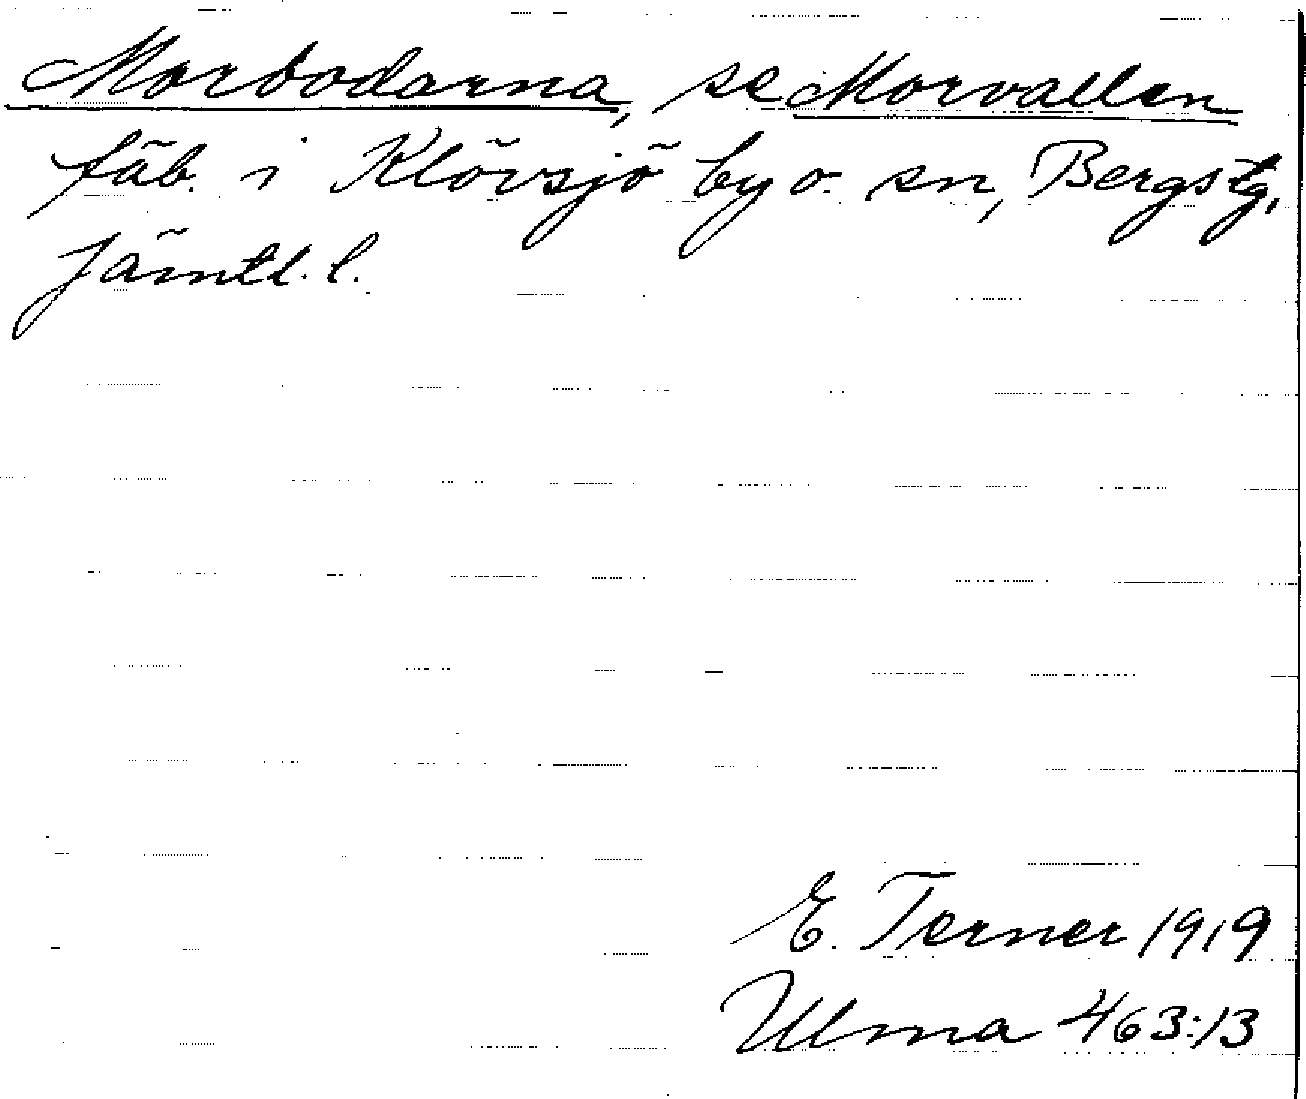 Morbodarna, se Morvallen
fäb. i Klövsjö by o. sn, Bergs tg,
Jämtl. l.
E. Terner 1919
Ulma 463:13